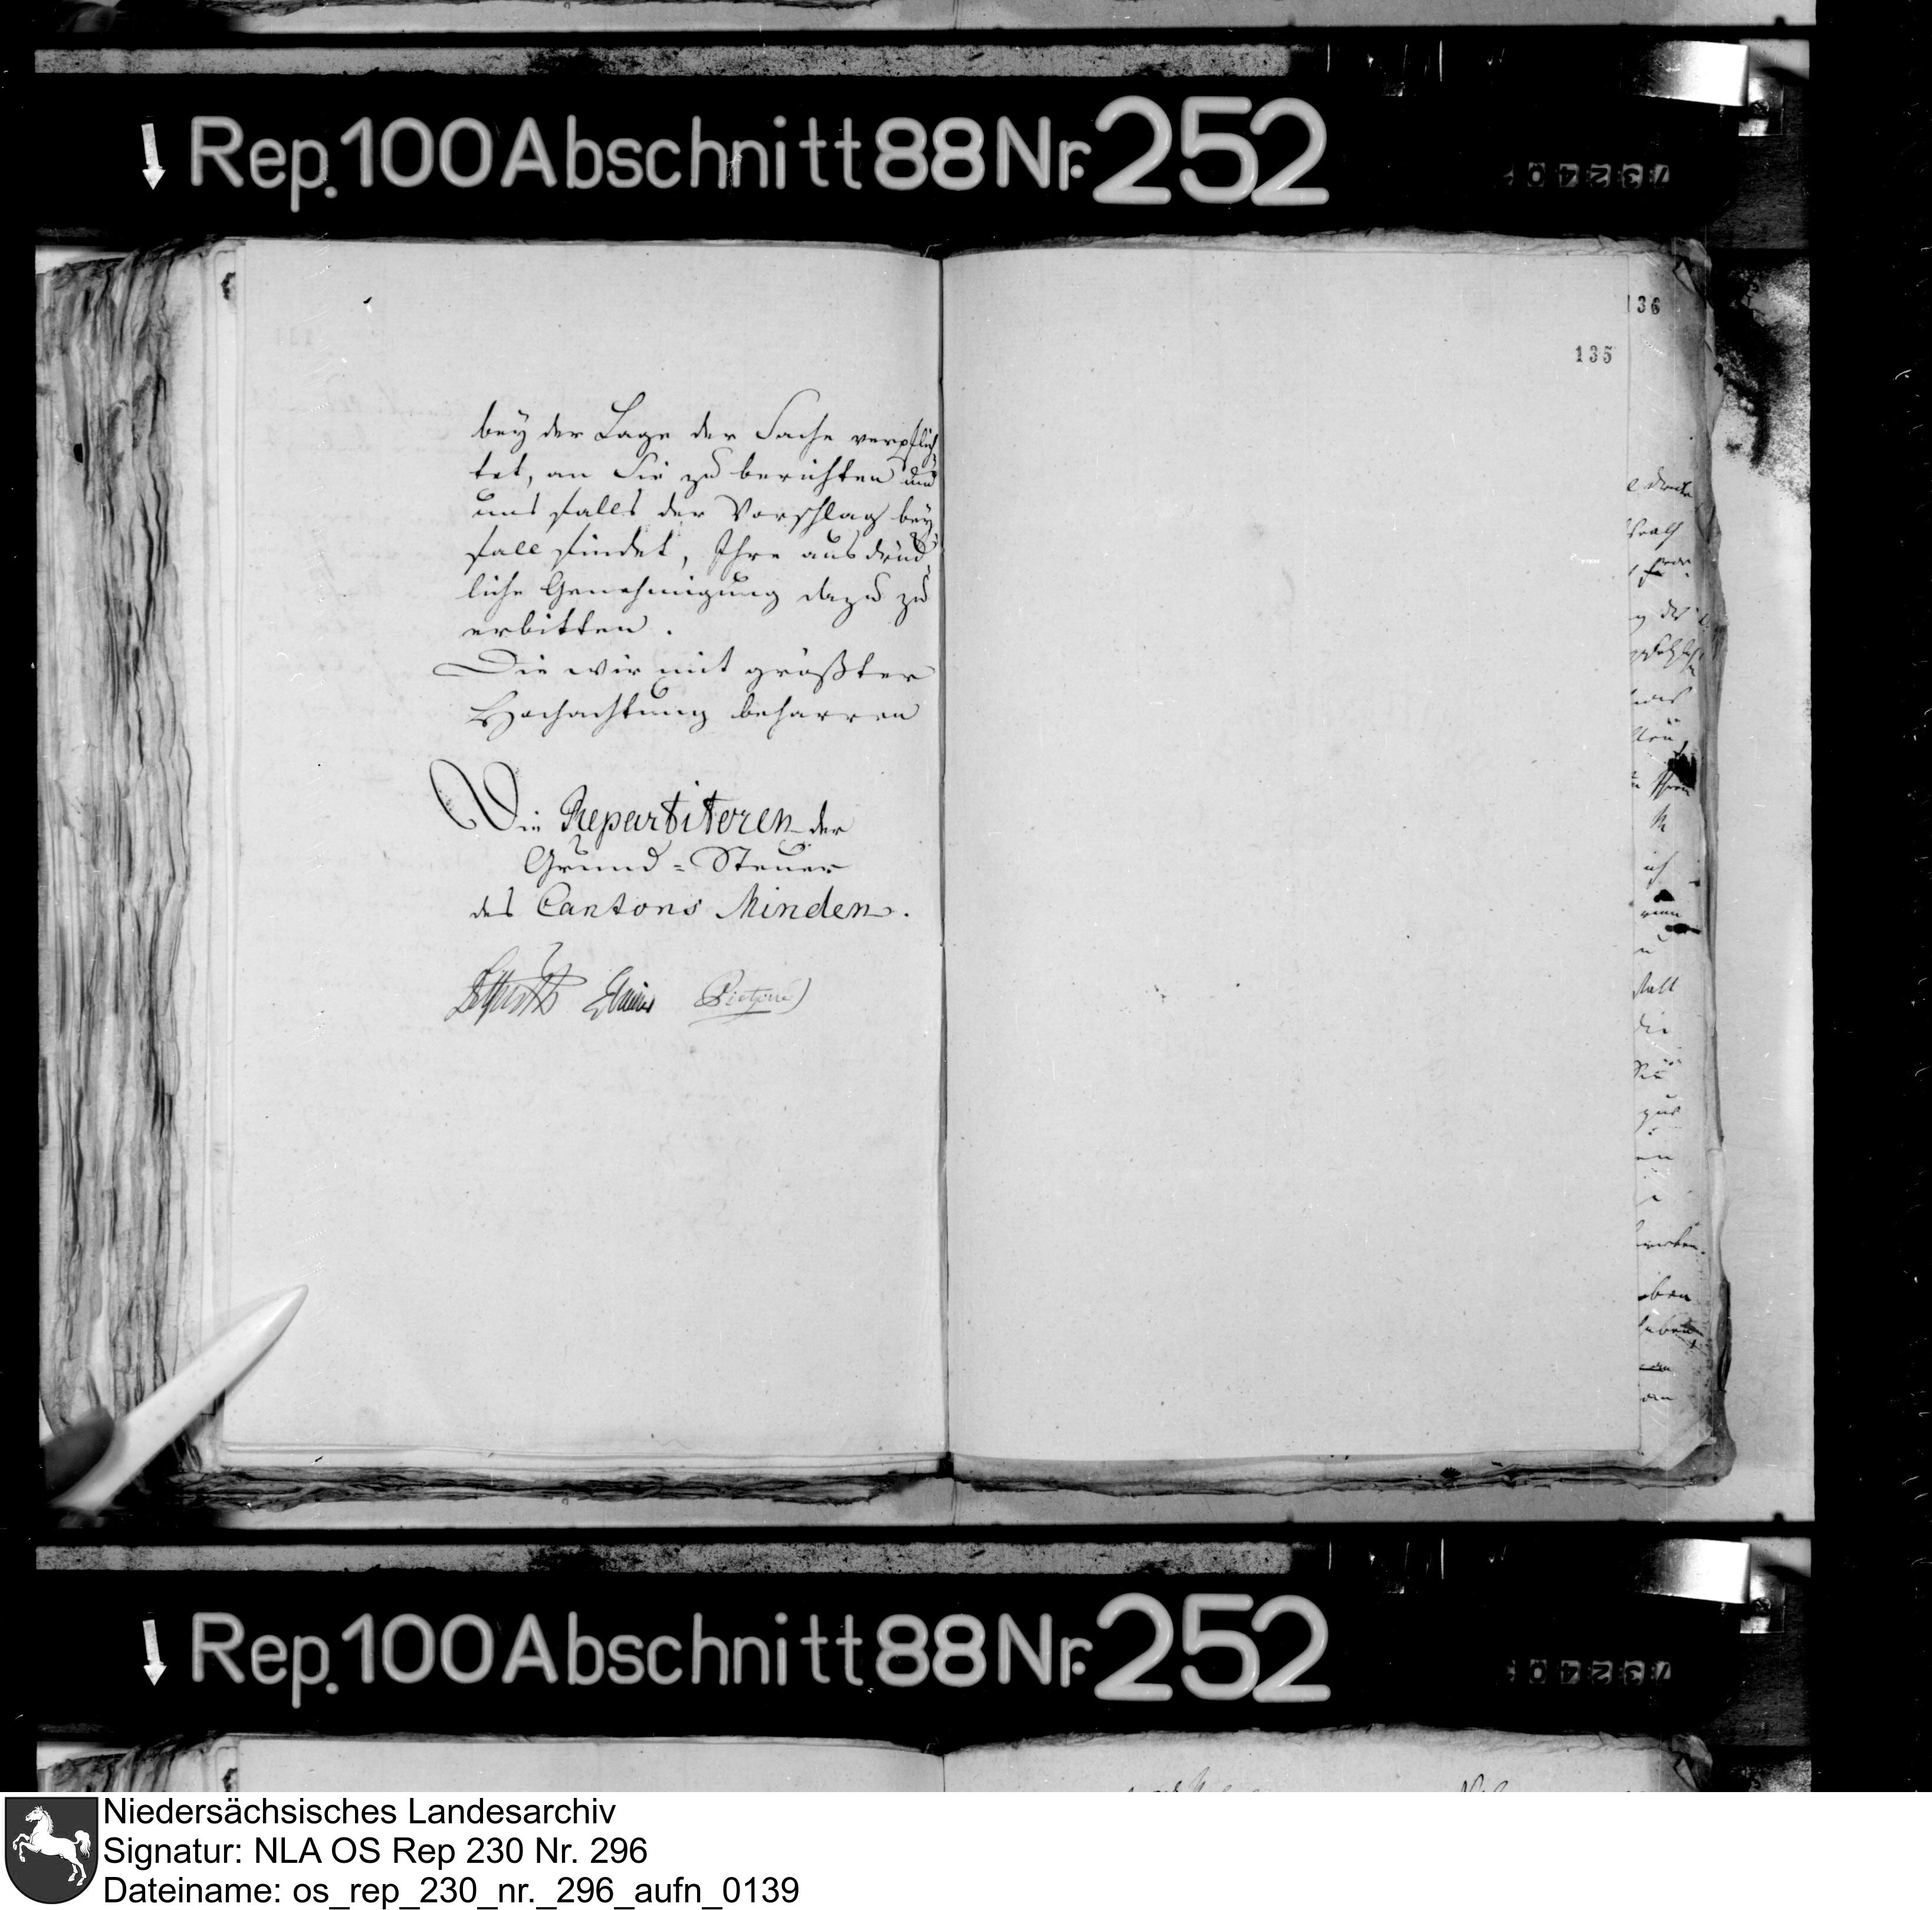 Rep. 100 Abschnitt 88 Nr. 252
73240
136
135
bey der Lage der Sache verpflich
tet, an Sie zu berichten und
uns falls der Vorschlag bey
fall findet, Ihre ausdrück
liche Genehmigung dazu zu
erbitten.
Die wir mit größter
Hochachtung beharren
Die Repartitoren der
Grund=Steuer
des Cantons Minden.
Rep. 100 Abschnitt 88 Nr. 252
73240
Niedersächsisches Landesarchiv
Signatur: NLA OS Rep 230 Nr. 296
Dateiname: os_rep_230_nr._296_aufn_0139